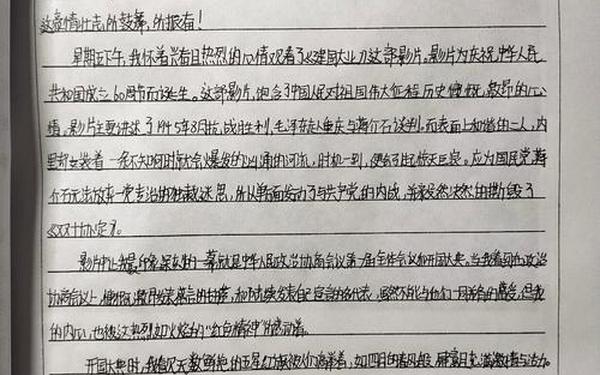 这豪情壮志所鼓舞,所振奋!
星期五下午,我怀着兴奋且热烈的心情观看了《建国大业》这部影片。影片为庆祝中华人民
共和国成立60周年而诞生。这部影片,饱含了中国人民对祖国伟大征程历史 敬昂的心
情。影片主要讲述了1945年8月抗战胜利,毛泽东赴重庆与蒋介石谈判。而表面上和谐的二人,内
里却安装着一条不知何时就会爆发的汹涌的河流,时机一到,便会引起惊天巨容。应为国民党蒋
介石无法放弃一党专治的独裁迷思,所以单面发动了与共产党的内战,并毅然决然的撕毁了
《双十协定》。
影片中让我最印象深刻的一幕就是中华人民政治协商会议第一届全体会议和开国大典。当我看到在政治
协商会议上,慷慨激昂发表宣言的 ,和陆续发表自己宣言的各代表,虽然不能与他们一同 ,但我
的内心,也被这热烈如火焰的“红色精神”感动着。
开国大典时,我看见无数鲜艳的五星红旗被人们高举着,如四月的春风般,屏幕月充满激情与活力。